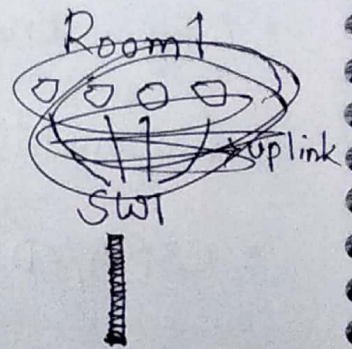 Room1
uplink
SW1